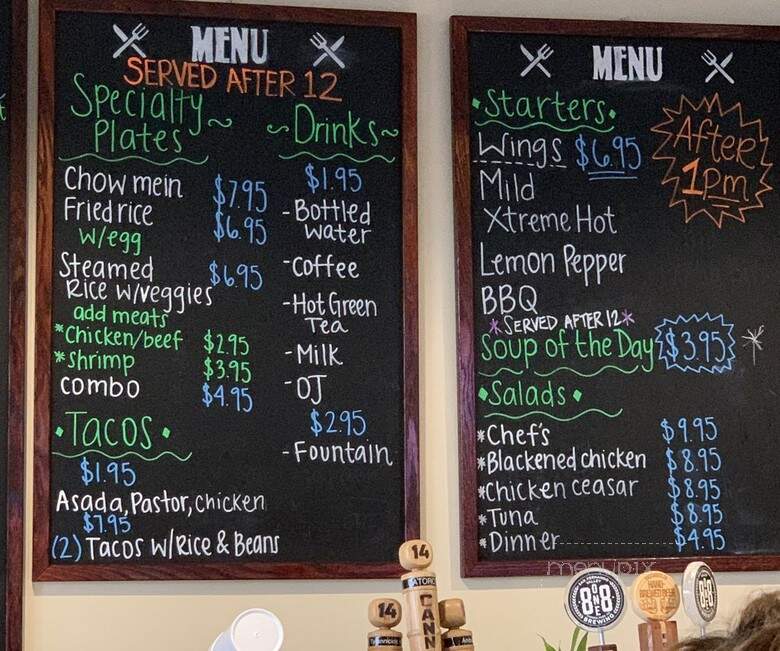 MENU
SERVED AFTER 12
Specialty
Plates
Chow mein $7.95
Fried rice $6.95
w/egg
Steamed $6.95
Rice w/veggies
add meats
*Chicken/beef $2.95
*shrimp $3.95
combo $4.95
Tacos
$1.95
Asada, Pastor, chicken
$7.95
(2) Tacos w/Rice & Beans
Drinks
$1.95
-Bottled
water
-Coffee
-Hot Green
Tea
-Milk
-OJ
$2.95
-Fountain
MENU
Starters
After
1pm
Wings $6.95
Mild
Xtreme Hot
Lemon Pepper
BBQ
*SERVED AFTER 12*
Soup of the Day $3.95
Salads
*Chef's $9.95
*Blackened chicken $8.95
*Chicken ceasar $8.95
*Tuna $8.95
*Dinner $4.95
menupix
14
CANN
14
8 ONE 8
BREWING